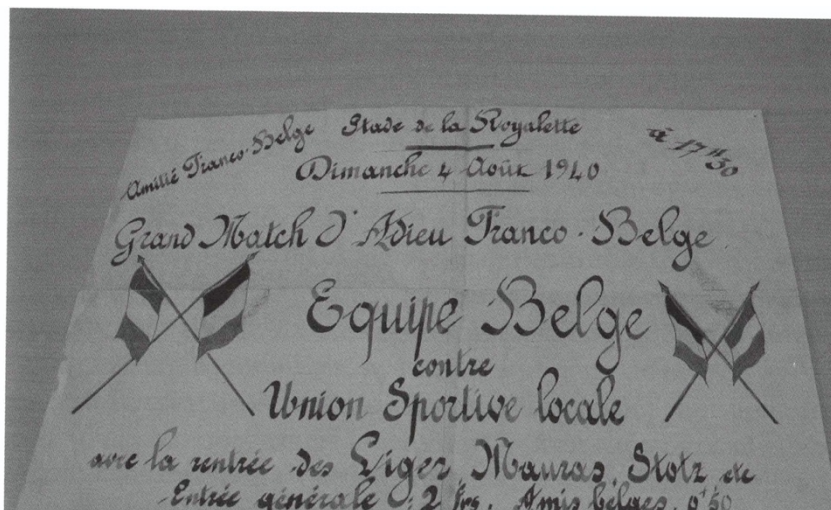 Amitié Franco-Belge
Stade de la Royalette
à 17H30
Dimanche 4 Août 1940
Grand Match d'Adieu Franco-Belge
Equipe Belge
contre
Union Sportive locale
avec la rentrée des Liger, Mauras, Stotz, etc
Entrée générale : 2 frs. Amis belges, 0f50